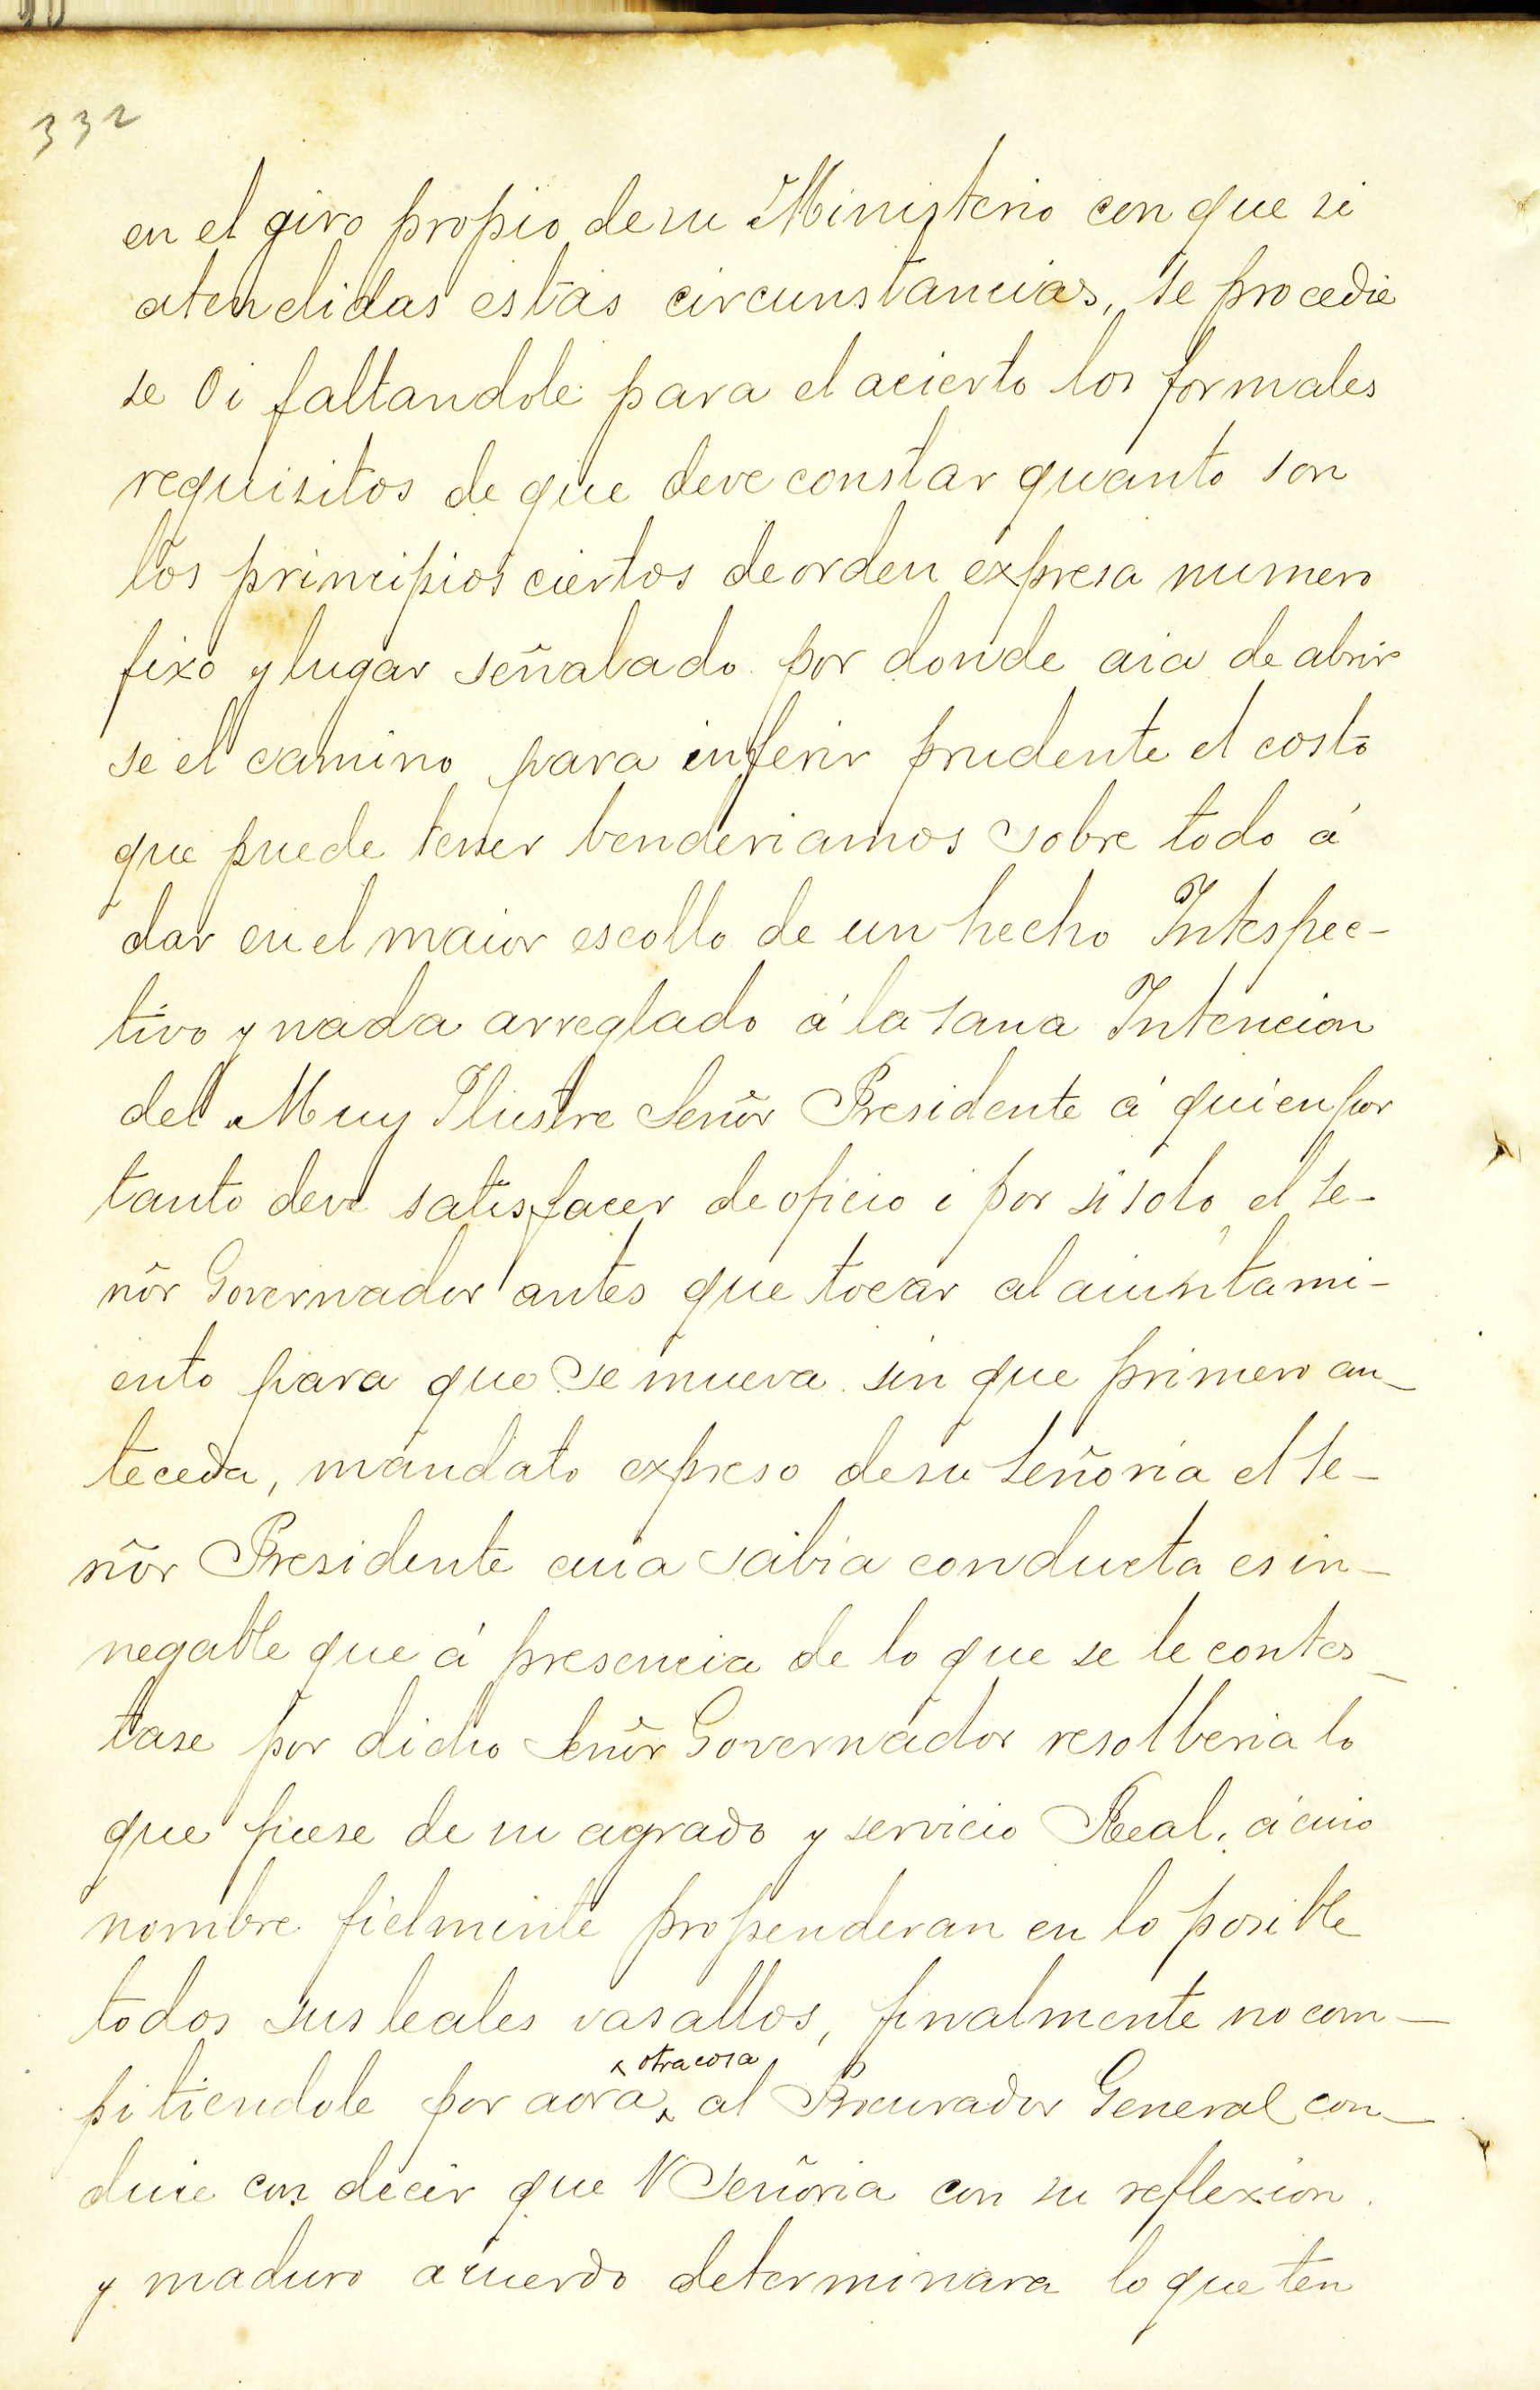 332
en el giro propio de su Ministerio con que si
atendidas estas circunstancias, se procedie
se Oi faltandole para el acierto los formales
requisitos de que deve constar quanto son
los principios ciertos de orden expresa numero
fixo y lugar señalado por donde aia de abrir
se el camino para inferir prudente el costo
que puede tener benderiamos sobre todo á
dar en el maior escollo de un hecho Intespec-
tivo y nada arreglado á la sana Intencion
del Muy Ilustre Señor Presidente á quien por
tanto deve satisfacer de oficio i por si solo el Se-
ñor Governador antes que tocar al aiuntami-
ento para que se mueva sin que primero an-
teceda, mandato expreso de su Señoria el Se-
ñor Presidente cuia sabia conducta es in-
negable que á presencia de lo que se le contes-
tase por dicho Señor Governador resolberia lo
que fuese de su agrado y servicio Real, á cuio
nombre fielmente propenderan en lo posible
todos sus leales vasallos, finalmente no com-
otra cosa
pitiendole por aora al Procurador General con-
cluie con decir que V Señoria con su reflexion
y maduro acuerdo determinara lo que ten